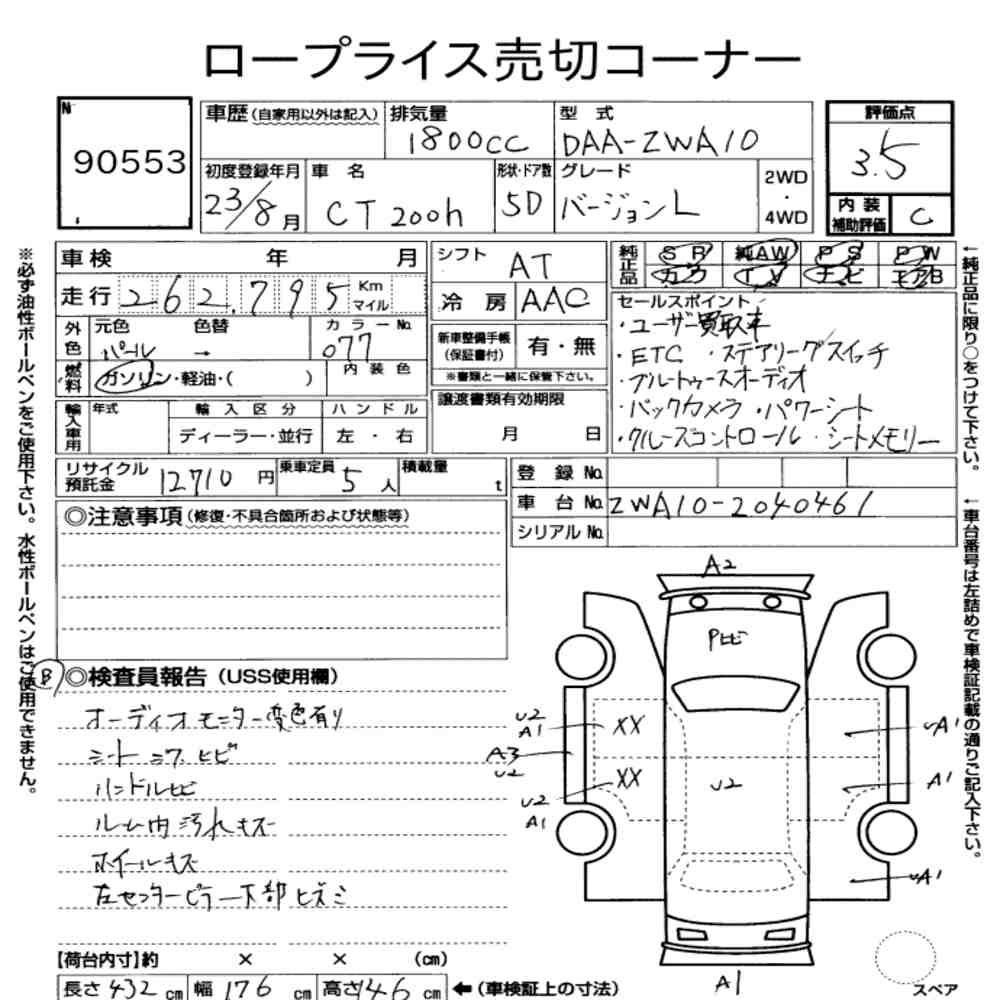 ロープライス売切コーナー
N
90553
車歴(自家用以外は記入)
排気量
1800cc
型 式
DAA-ZWA10
評価点
3.5
初度登録年月
23/8月
車 名
CT200h
形状・ドア数
5D
グレード
バージョンL
2WD
・
4WD
内 装
補助評価
C
車検 年 月
走行 262,795 Km マイル
シフト
AT
冷 房
AAC
純正品
SR
純AW
PS
PW
カワ
TV
ナビ
エアB
外色
元色 色替
パール →
カラーNo.
077
新車整備手帳
(保証書付)
有・無
※書類と一緒に保管下さい。
セールスポイント
・ユーザー買取車
・ETC ・ステアリングスイッチ
・ブルートゥースオーディオ
・バックカメラ ・パワーシート
・クルーズコントロール ・シートメモリー
燃料
ガソリン・軽油・( )
内 装 色
輸入車用
年式
輸 入 区 分
ディーラー・並行
ハ ン ド ル
左 ・ 右
譲渡書類有効期限
月 日
リサイクル
預託金
12710円
乗車定員
5人
積載量
t
登 録 No.
車 台 No. ZWA10-2040461
シリアル No.
◎注意事項(修復・不具合箇所および状態等)
B
◎検査員報告(USS使用欄)
オーディオモニター変色有り
シート シワ ヒビ
ハンドルヒビ
ルーム内 汚れ キズ
ホイールキズ
左センターピラー下部 ヒズミ
A2
Pヒビ
U2
A1
XX
A3
U2
XX
U2
A1
U2
UA1
A1
UA1
A1
スペア
【荷台内寸】約 × × (cm)
長さ 432 cm 幅 176 cm 高さ 146 cm ←(車検証上の寸法)
※必ず油性ボールペンをご使用下さい。水性ボールペンはご使用できません。
←純正品に限り○をつけて下さい。
←車台番号は左詰めで車検証記載の通りご記入下さい。